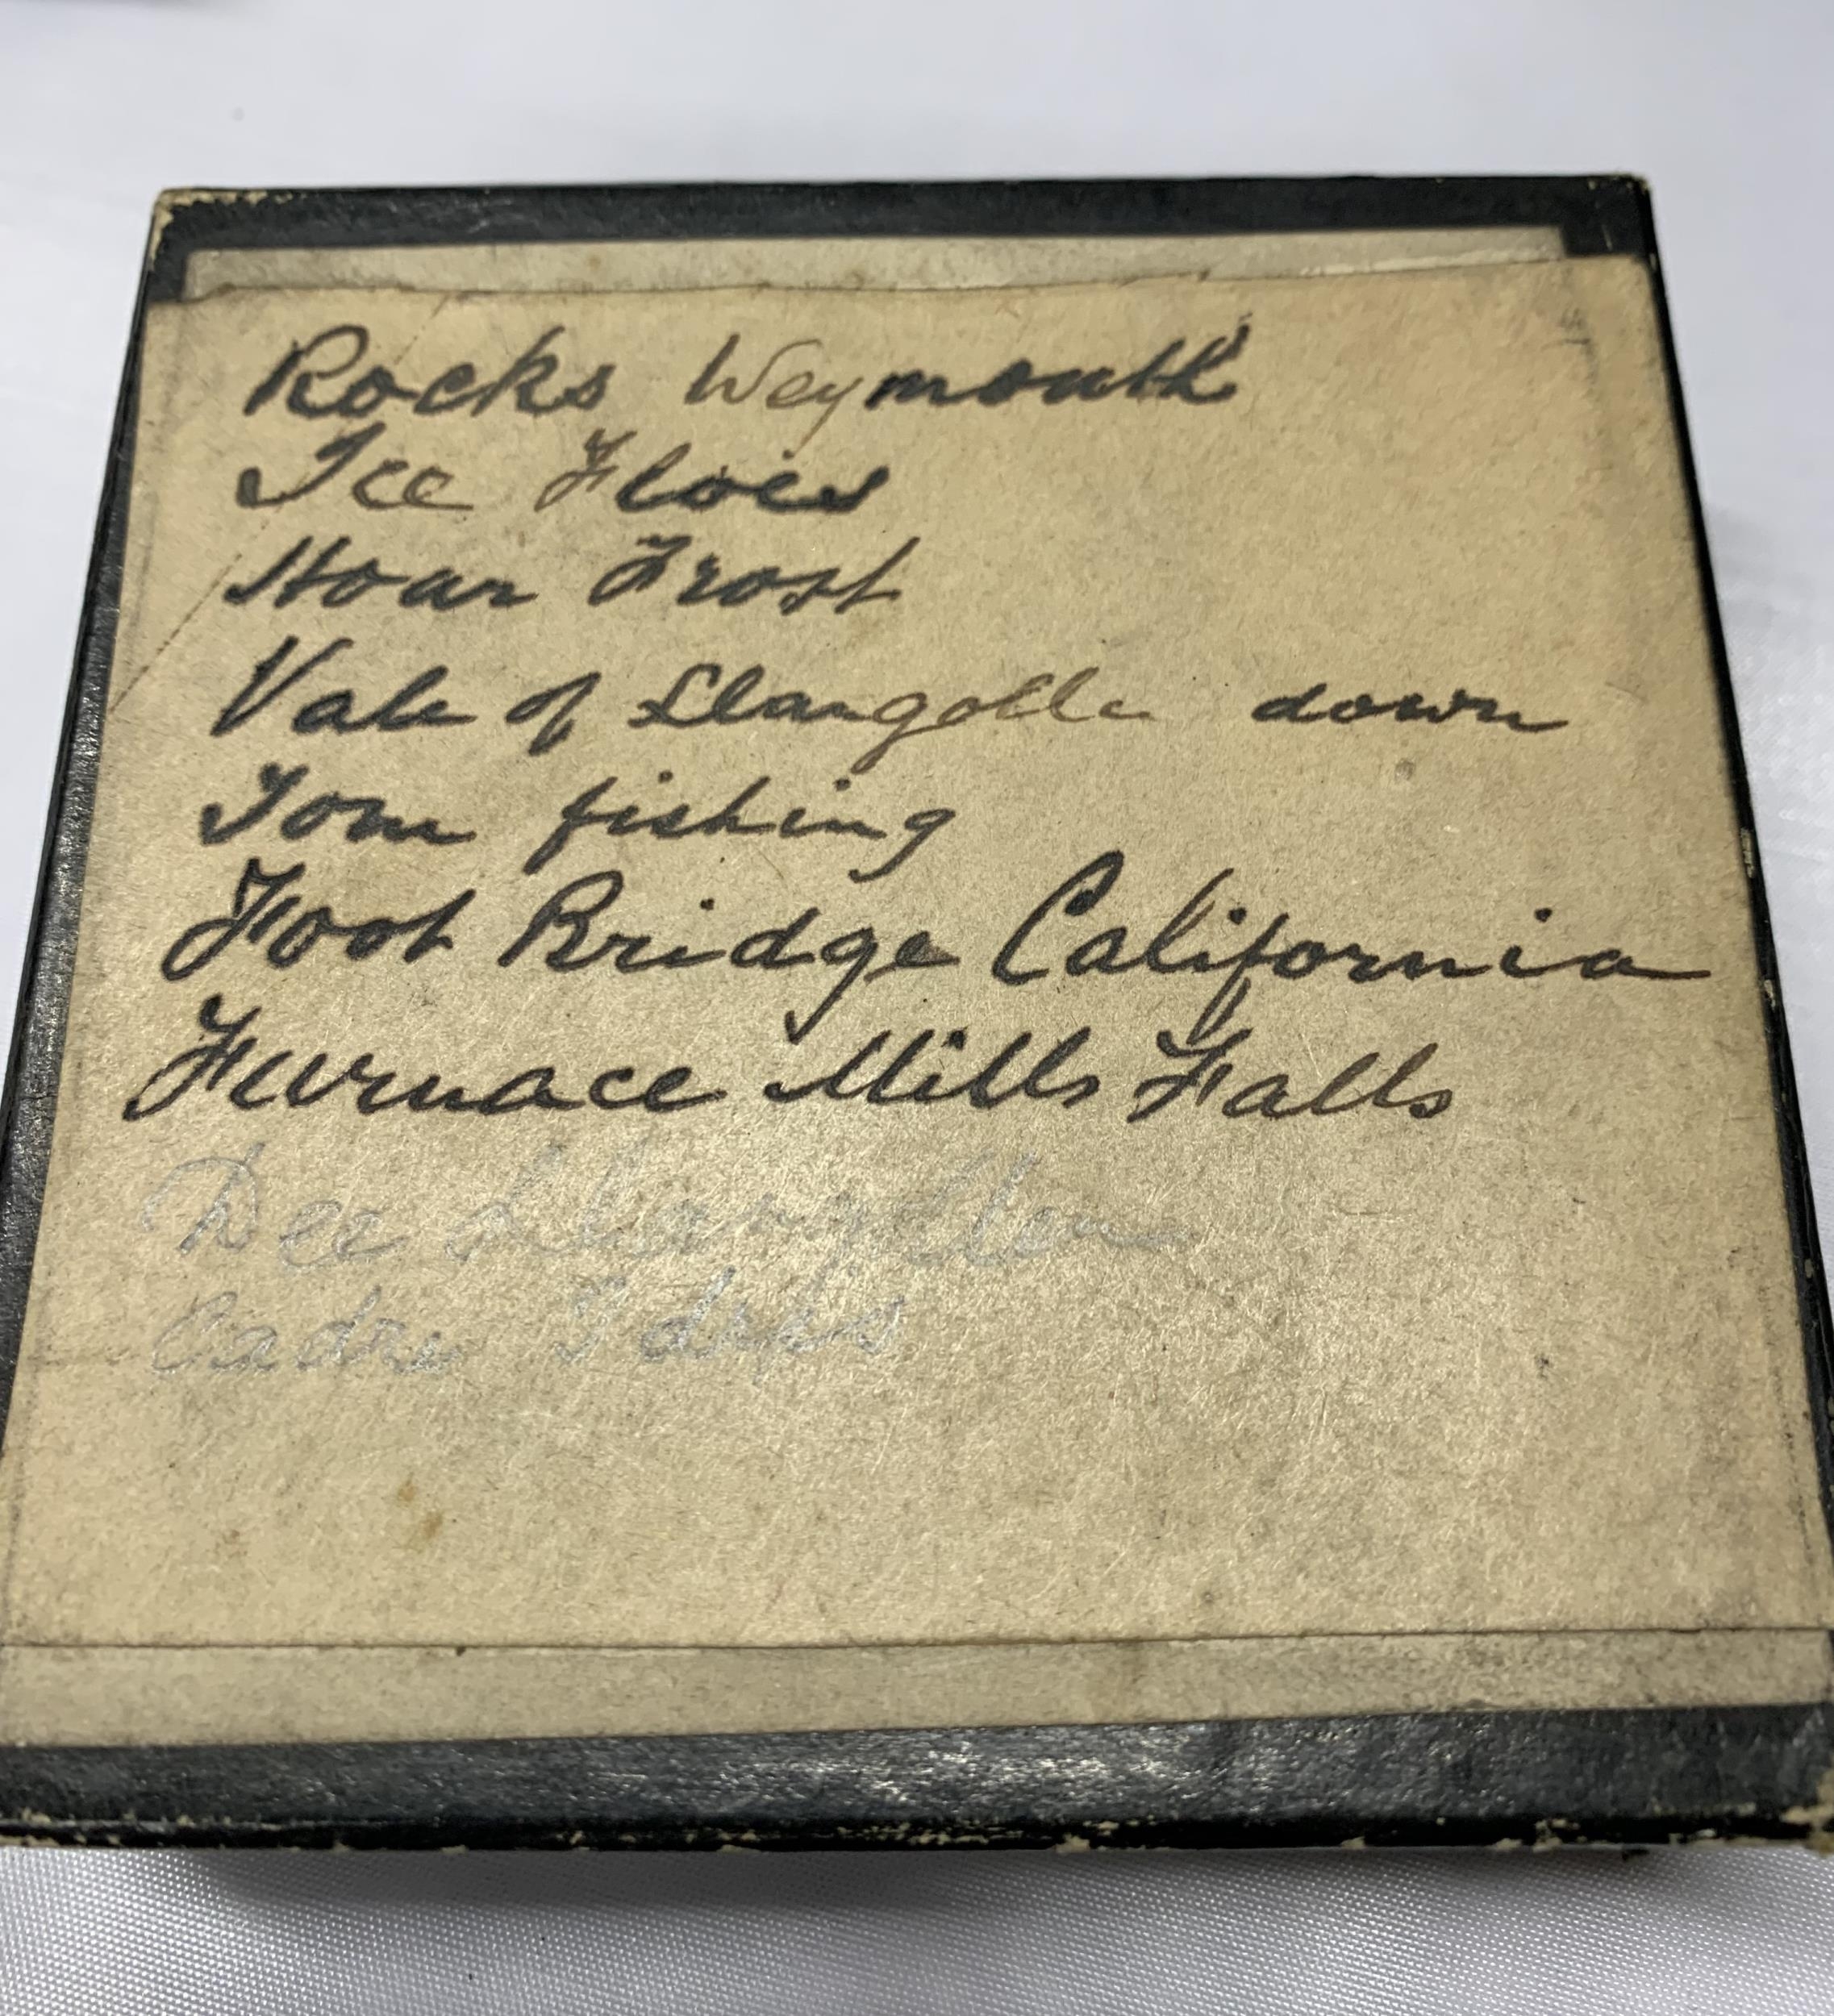 Rocks Weymouth
Ice Floes
Hoar Frost
Vale of Llangolle down
Tom fishing
Foot Bridge California
Furnace Mills Falls
Dee Llangollen
Cadre Idris